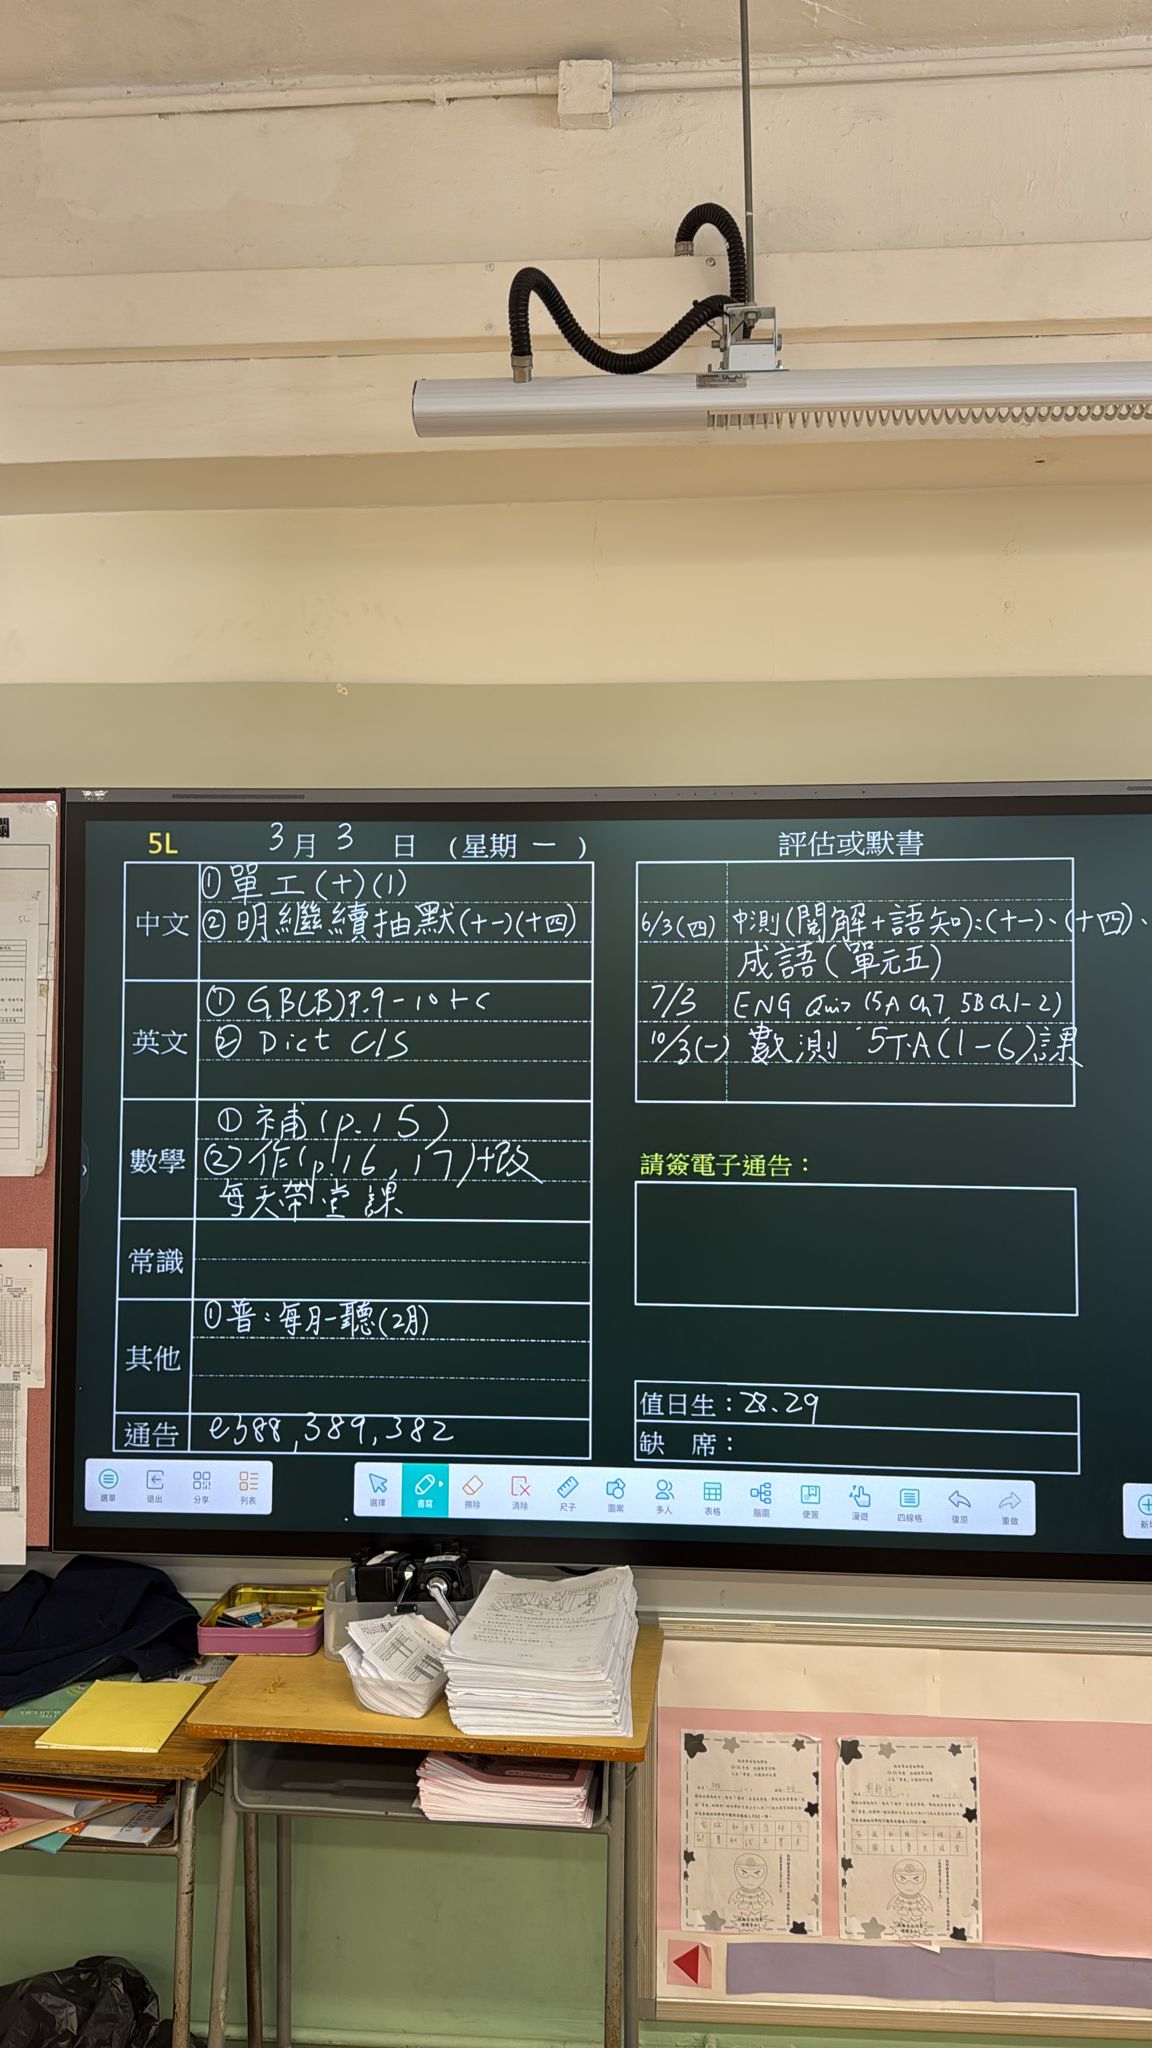 5L 3月3日（星期一）
中文
①單工(十)(1)
②明繼續抽默(十一)(十四)
英文
①GB(B)P.9-10+c
②Dict C/S
數學
①補(p.15)
②作(p.16,17)+改
每天帶堂課
常識
其他
①普:每月一聽(2月)
通告 e388,389,382
評估或默書
6/3(四) 中測(閱解+語知):(十一)、(十四)、
成語(單元五)
7/3 ENG Quiz (5A Ch7, 5B Ch1-2)
10/3(一) 數測 5T.A(1-6)課
請簽電子通告：
值日生：28.29
缺席：
選單 退出 分享 列表 選擇 書寫 擦除 清除 尺子 圖案 多人 表格 腦圖 便簽 漫遊 四線格 復原 重做